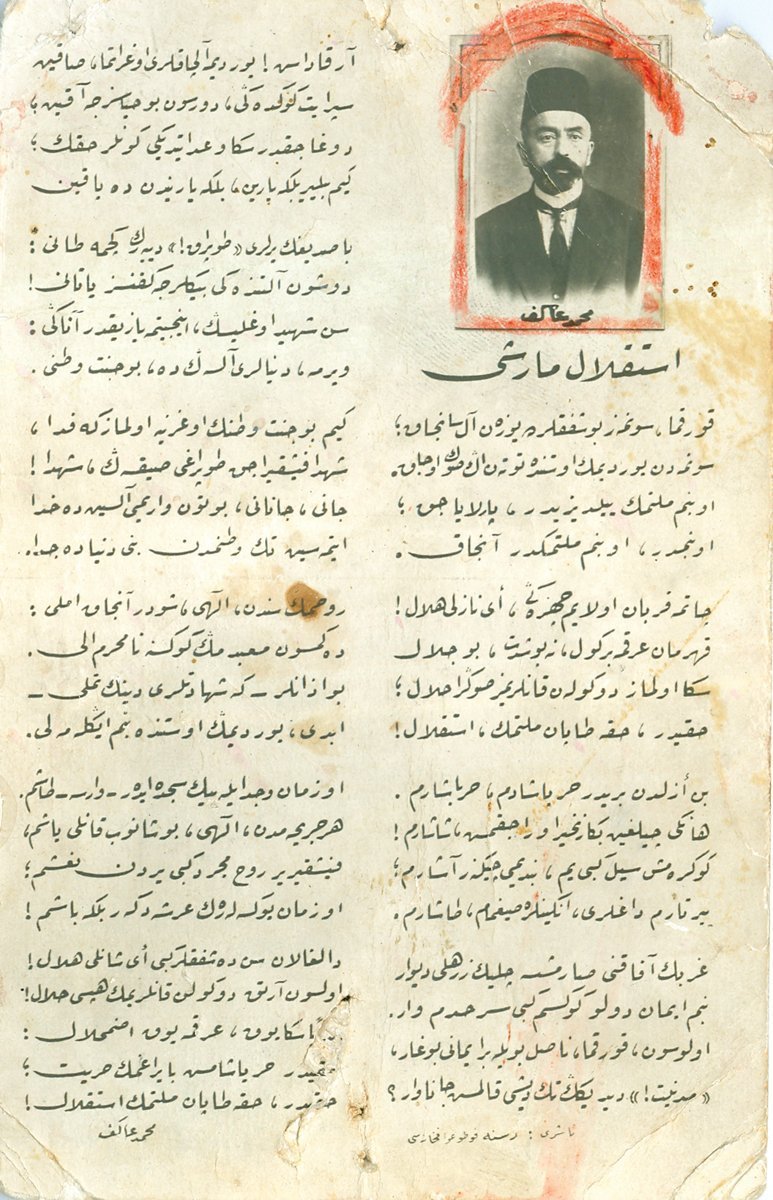 محمد عاكف
استقلال مارشى
قورقما، سونمز بو شفقلرده يوزن آل سانجاق؛
سونمه‌دن يورديمك اوستنده توتن اڭ صوڭ اوجاق.
او بنم ملتمك ييلديزيدر، پارلاياجق؛
او بنمدر، او بنم ملتمكدر آنجاق.
چاتمه قربان اولايم چهره‌ڭى، أى نازلى هلال!
قهرمان عرقمه بر كول، نه بو شدت، بو جلال
سكا اولماز دوكولن قانلريمز صوڭرا حلال؛
حقيدر، حقه طاپان ملتمك، استقلال!
بن أزلدن بريدر حر ياشادم، حر ياشارم.
هانكى چيلغين بكا زنجير اوراجقمس، شاشارم!
كوكره‌مش سيل كبى يم، بنديمى چيكنر آشارم؛
ييرتارم داغلرى، انكينلره صيغمام، طاشارم.
غربك آفاقنى صارمشسه چليك زرهلى ديوار
بنم ايمان دولو كوكسم كبى سرحدم وار.
اولوسون، قورقما، ناصل بويله بر ايمانى بوغار،
«مدنيت!» ديديكك تك ديشى قالمش جاناوار؟
ناشرى: دسنه فوطوغرافخانه‌سى
آرقاداش! يورديمه آلچاقلرى اوغراتما، صاقين
سپر ايت كوكده‌ڭى، دورسون بو حياسزجه آقين؛
دوغاجقدر سكا وعد ايتديكى كونلر حقك؛
كيم بيلير بلكه يارين، بلكه ياريندن ده ياقين
باصديغك يرلرى «طوپراق!» ديه‌رك كچمه طانى:
دوشون آلتنده‌كى بيكلرجه كفنسز ياتانى!
سن شهيد اوغليسك، اينجيتمه يازيقدر آتاكى:
ويرمه، دنيالرى آلسه‌ڭ ده، بو جنت وطنى.
كيم بو جنت وطنك اوغرينه اولمازكه فدا،
شهدا فيشقيراجق طوپراغى صيقسه‌ڭ، شهدا!
جانى، جانانى، بوتون واريمى آلسين ده خدا
ايتمه‌سين تك وطنمدن بنى دنياده جدا.
روحمك سندن، الهى، شودر آنجاق املى:
دكمسون معبدمك كوكسنه نامحرم الى.
بو اذانلر ـ كه شهادتلرى دينك تملى ـ
ابدى، يورديمك اوستنده بنم ايكله‌مه‌لى.
او زمان وجد ايله بيك سجده ايدر ـ وارسه ـ طاشم.
هر جريحه‌مدن، الهى، بوشانوب قانلى ياشم،
فيشقيرير روح مجرد كبى يردن نعشم؛
او زمان يوكسله‌رك عرشه دكر بلكه باشم!
دالغالان سن ده شفقلر كبى أى شانلى هلال!
اولسون آرتق دوكولن قانلريمك هپسى حلال!
سكا يوق، عرقمه يوق اضمحلال:
حقيدر حر ياشامش بايراغمك حريت؛
حقيدر، حقه طاپان ملتمك استقلال!
محمد عاكف